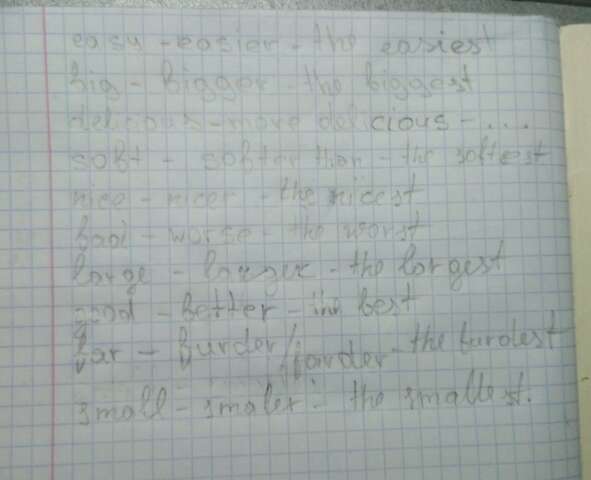 easy - easier - the easiest
big - bigger - the biggest
delicious - more delicious - ....
soft - softer than - the softest
nice - nicer - the nicest
bad - worse - the worst
large - larger - the largest
good - better - the best
far - furder/farder - the furdest
small - smaler - the smallest.